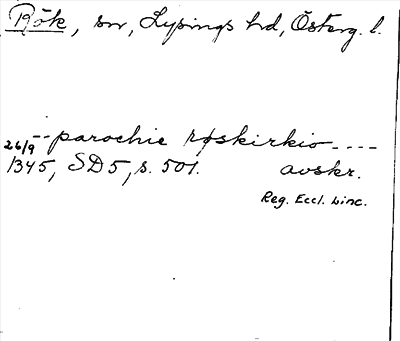 Rök, sn, Lysings hd, Österg. l.
26/9 -- parochie røskirkio ----
1345, SD5, s. 501. avskr.
Reg. Eccl. Linc.